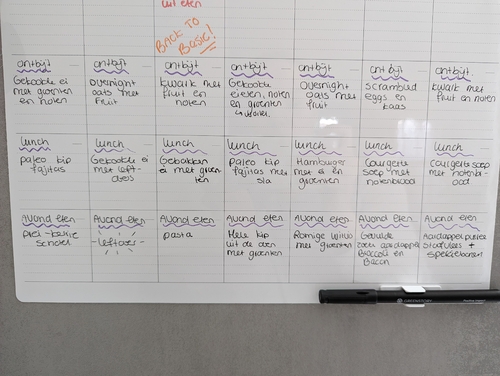 uit eten
BACK TO
BASIC!
ontbijt
Gekookte ei
met groenten
en noten
ontbijt
overnight
oats met
fruit
ontbijt
kwark met
fruit en
noten
ontbijt
Gekookte
eieren, noten
en groenten
ontbijt
Overnight
oats met
fruit
ontbijt
Scrambled
eggs en
kaas
ontbijt
kwark met
fruit en noten
lunch
paleo kip
fajitas
lunch
Gekookte ei
met left-
lunch
Gebakken
ei met groen-
ten
lunch
Paleo kip
fajitas met
sla
lunch
Hamburger
met ei en
groenten
lunch
Courgette
soep met
notenbrood
lunch
Courgette soep
met notenbr-
ood
Avond eten
Prei-
schotel
Avond eten
-leftover-
Avond eten
pasta
Avond eten
Hele kip
uit de oven
met groenten
Avond eten
Romige
met groenten
Avond eten
zoete aardappel
Broccoli en
Bacon
Avond eten
Aardappel puree
stoofvlees +
sperziebonen
GREENSTORY